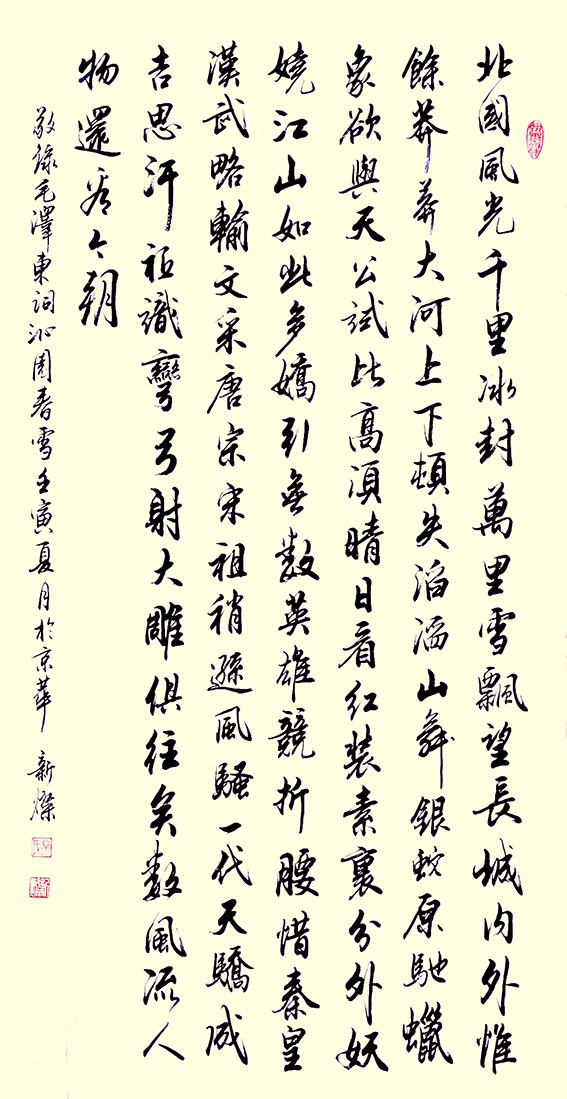 北國風光千里冰封萬里雪飄望長城内外惟
餘莽莽大河上下頓失滔滔山舞銀蛇原馳蠟
象欲與天公試比高須晴日看紅裝素裹分外妖
嬈江山如此多嬌引無數英雄競折腰惜秦皇
漢武略輸文采唐宗宋祖稍遜風騷一代天驕成
吉思汗祗識彎弓射大雕俱往矣數風流人
物還看今朝
敬錄毛澤東詞沁園春雪壬寅夏月於京華 新燦